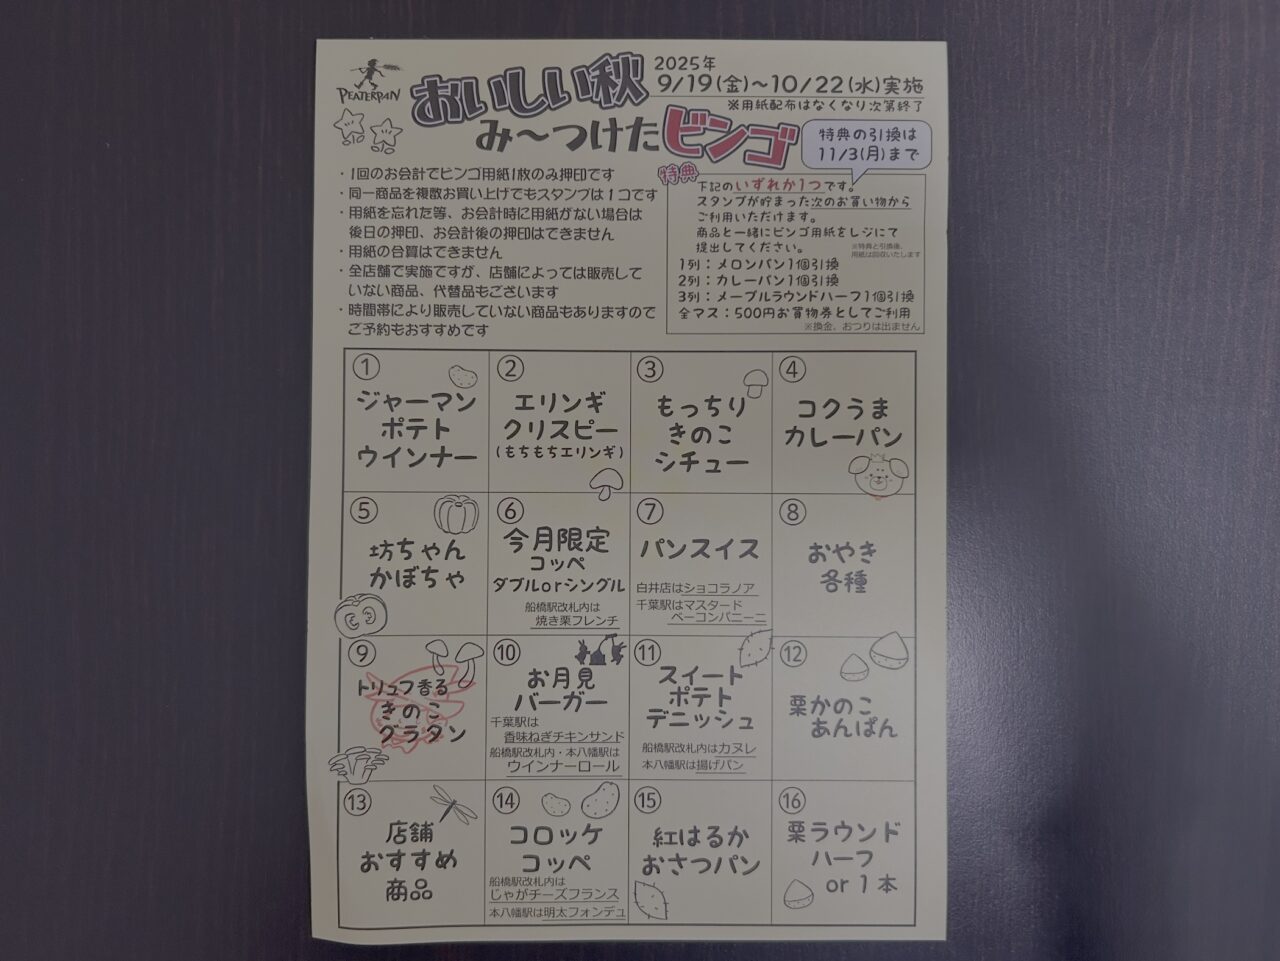 PEATERPAN
おいしい秋
み〜つけたビンゴ
2025年
9/19(金)〜10/22(水)実施
※用紙配布はなくなり次第終了
特典の引換は
11/3(月)まで
・1回のお会計でビンゴ用紙1枚のみ押印です
・同一商品を複数お買い上げでもスタンプは1コです
・用紙を忘れた等、お会計時に用紙がない場合は
後日の押印、お会計後の押印はできません
・用紙の合算はできません
・全店舗で実施ですが、店舗によっては販売して
いない商品、代替品もございます
・時間帯により販売していない商品もありますので
ご予約もおすすめです
特典
下記のいずれか1つです。
スタンプが貯まった次のお買い物から
ご利用いただけます。
商品と一緒にビンゴ用紙をレジにて
提出してください。
※特典と引換後、
用紙は回収いたします
1列：メロンパン1個引換
2列：カレーパン1個引換
3列：メープルラウンドハーフ1個引換
全マス：500円お買物券としてご利用
※換金、おつりは出ません
①
ジャーマン
ポテト
ウインナー
②
エリンギ
クリスピー
(もちもちエリンギ)
③
もっちり
きのこ
シチュー
④
コクうま
カレーパン
⑤
坊ちゃん
かぼちゃ
⑥
今月限定
コッペ
ダブルorシングル
船橋駅改札内は
焼き栗フレンチ
⑦
パンスイス
白井店はショコラノア
千葉駅はマスタード
ベーコンパニーニ
⑧
おやき
各種
⑨
トリュフ香る
きのこ
グラタン
⑩
お月見
バーガー
千葉駅は
香味ねぎチキンサンド
船橋駅改札内・本八幡駅は
ウインナーロール
⑪
スイート
ポテト
デニッシュ
船橋駅改札内はカヌレ
本八幡駅は揚げパン
⑫
栗かのこ
あんぱん
⑬
店舗
おすすめ
商品
⑭
コロッケ
コッペ
船橋駅改札内は
じゃがチーズフランス
本八幡駅は明太フォンデュ
⑮
紅はるか
おさつパン
⑯
栗ラウンド
ハーフ
or 1本